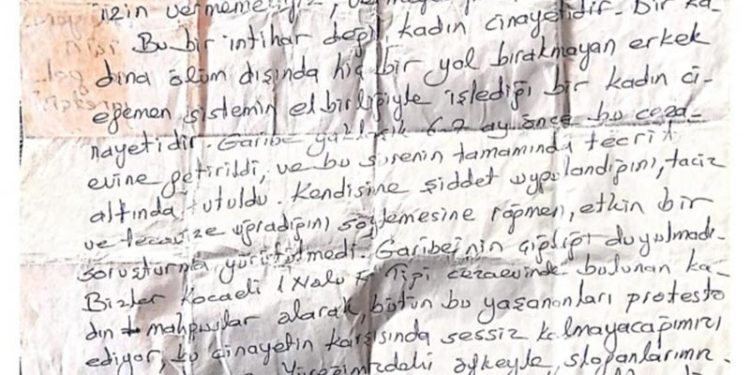 izin vermemeliyiz,
Bu bir intihar değil kadın cinayetidir. Bir ka-
dına ölüm dışında hiç bir yol bırakmayan erkek
egemen sistemin elbirliğiyle işlediği bir kadın ci-
nayetidir. Garibe yaklaşık 6-7 ay önce bu ceza
evine getirildi, ve bu sürenin tamamında tecrit
altında tutuldu. Kendisine şiddet uygulandığını, taciz
ve tecavüze uğradığını söylemesine rağmen, etkin bir
soruşturma yürütülmedi. Garibe'nin çığlığı duyulmadı.
Bizler Kocaeli 1 Nolu F Tipi cezaevinde bulunan ka-
dın mahpuslar olarak, bütün bu yaşananları protesto
ediyor, bu cinayetin karşısında sessiz kalmayacağımızı
Yüreğimizdeki öfkeyle, sloganlarımı